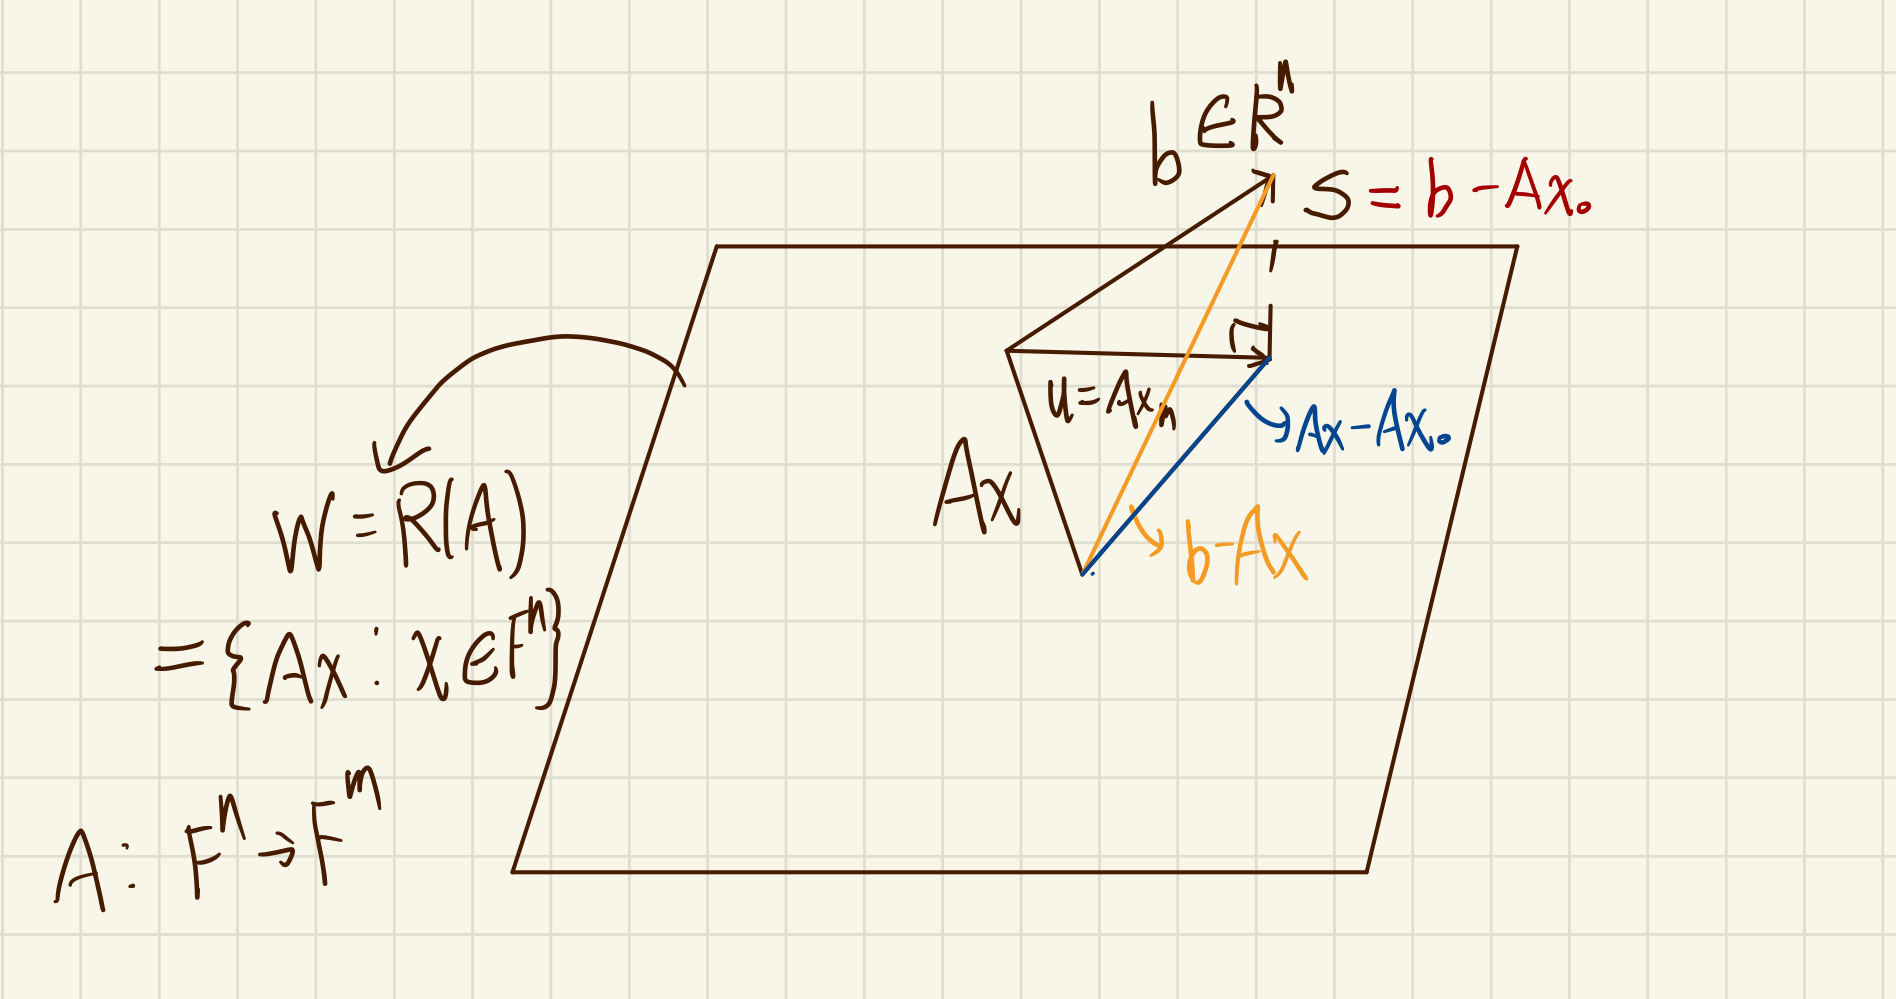 b ∈ Rⁿ
S = b - Ax₀
u = Axₙ
Ax - Ax₀
Ax
b - Ax
W = R(A)
= {Ax : x ∈ Fⁿ}
A : Fⁿ → Fᵐ